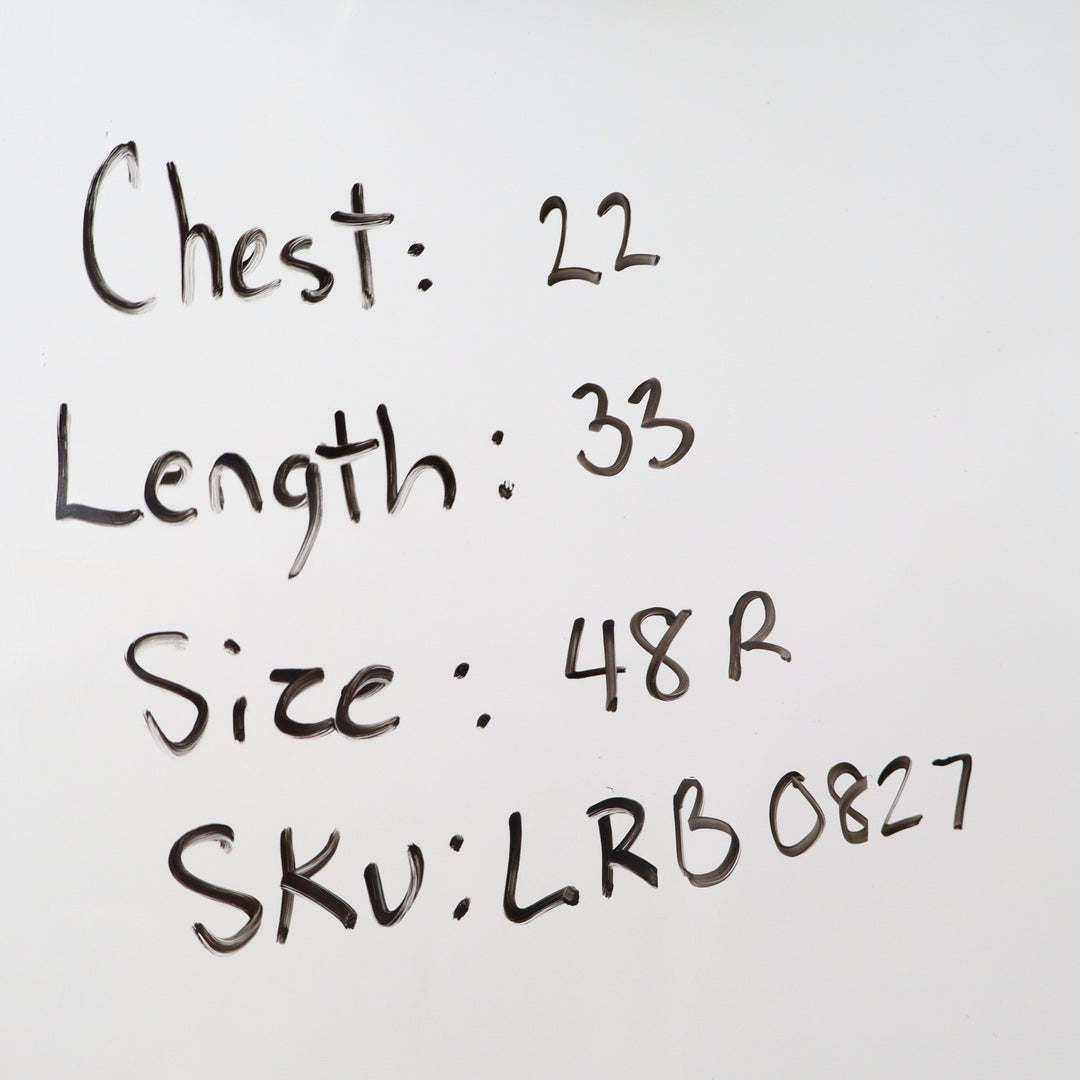 Chest: 22
Length: 33
Size: 48 R
SKU: LRB0827